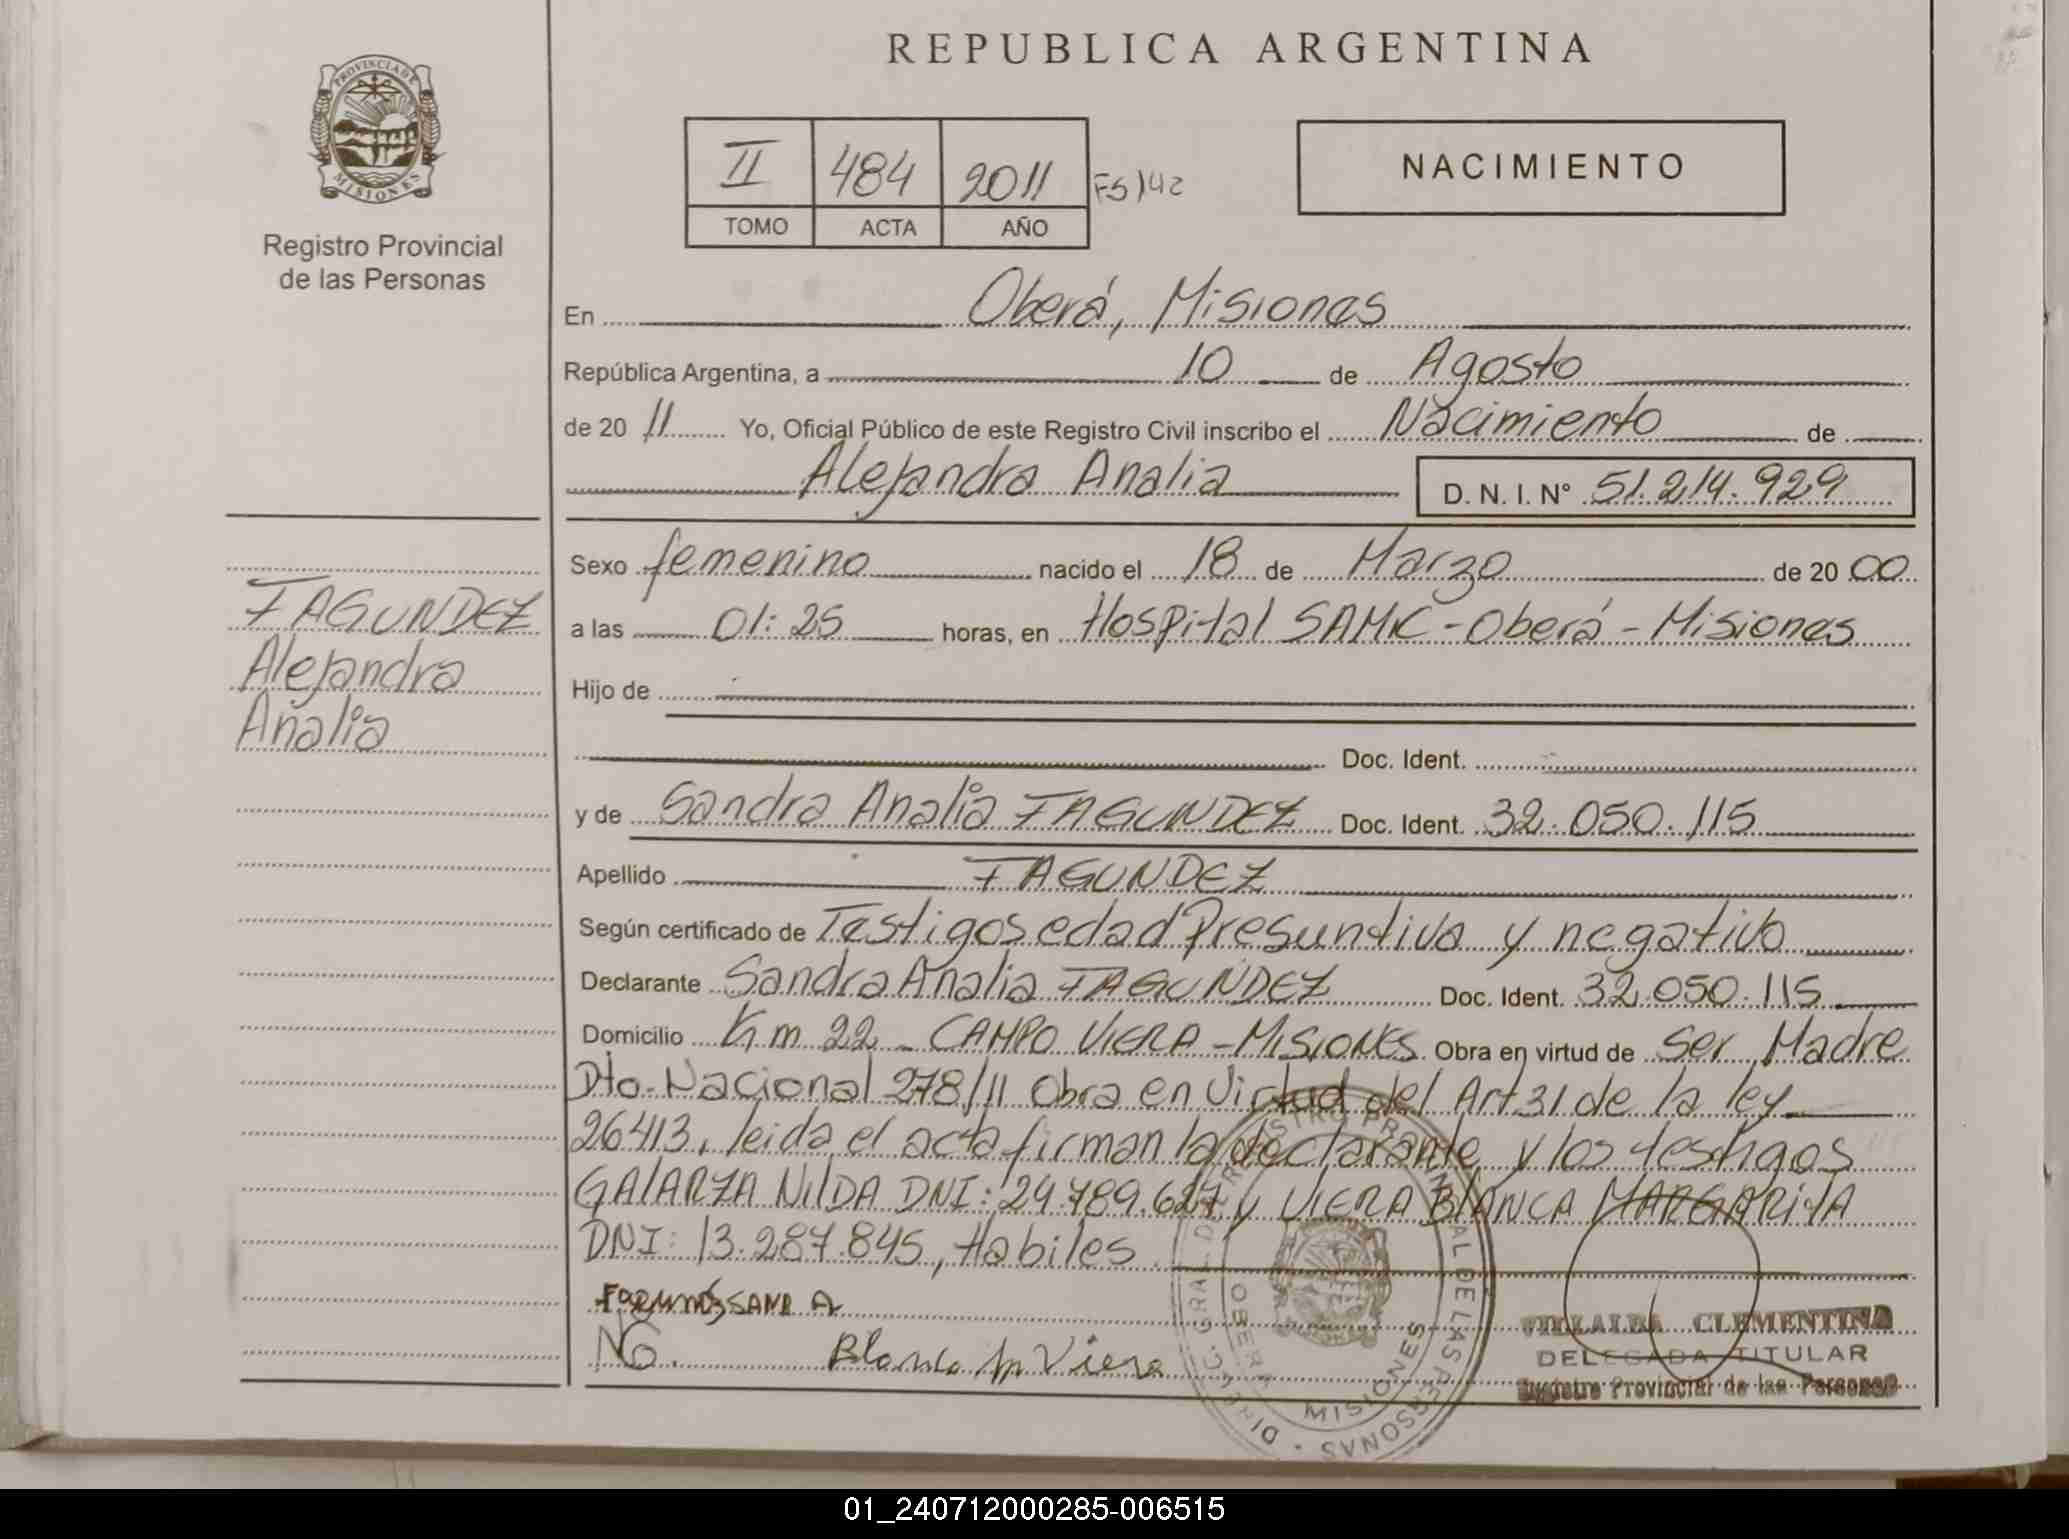 REPUBLICA ARGENTINA
PROVINCIA DE
MISIONES
Registro Provincial
de las Personas
II 484 2011 FS 142
TOMO ACTA AÑO
NACIMIENTO
En Oberá, Misiones
República Argentina, a 10 de Agosto
de 20 11 Yo, Oficial Público de este Registro Civil inscribo el Nacimiento de
Alejandra Analia D. N. I. N° 51.214.929
Sexo femenino nacido el 18 de Marzo de 20 00
a las 01:25 horas, en Hospital SAMIC - Oberá - Misiones
FAGUNDEZ
Alejandra
Analia
Hijo de
Doc. Ident.
y de Sandra Analia FAGUNDEZ Doc. Ident. 32.050.115
Apellido FAGUNDEZ
Según certificado de Testigos edad Presuntiva y negativo
Declarante Sandra Analia FAGUNDEZ Doc. Ident. 32.050.115
Domicilio Km 22 - CAMPO VIERA - MISIONES Obra en virtud de ser Madre
Dto. Nacional 278/11 Obra en Virtud del Art 31 de la ley
26413, leida el acta firman la declarante y los testigos
GALARZA NILDA DNI: 24.789.627 y VIERA BLANCA MARGARITA
DNI: 13.287.845, Habiles
SAND A
NG. Blanca M Viera
VILLALBA CLEMENTINA
DELEGADA TITULAR
Registro Provincial de las Personas
DIREC. GRAL. DEL REGISTRO PROVINCIAL DE LAS PERSONAS
OBERÁ MISIONES
01_240712000285-006515